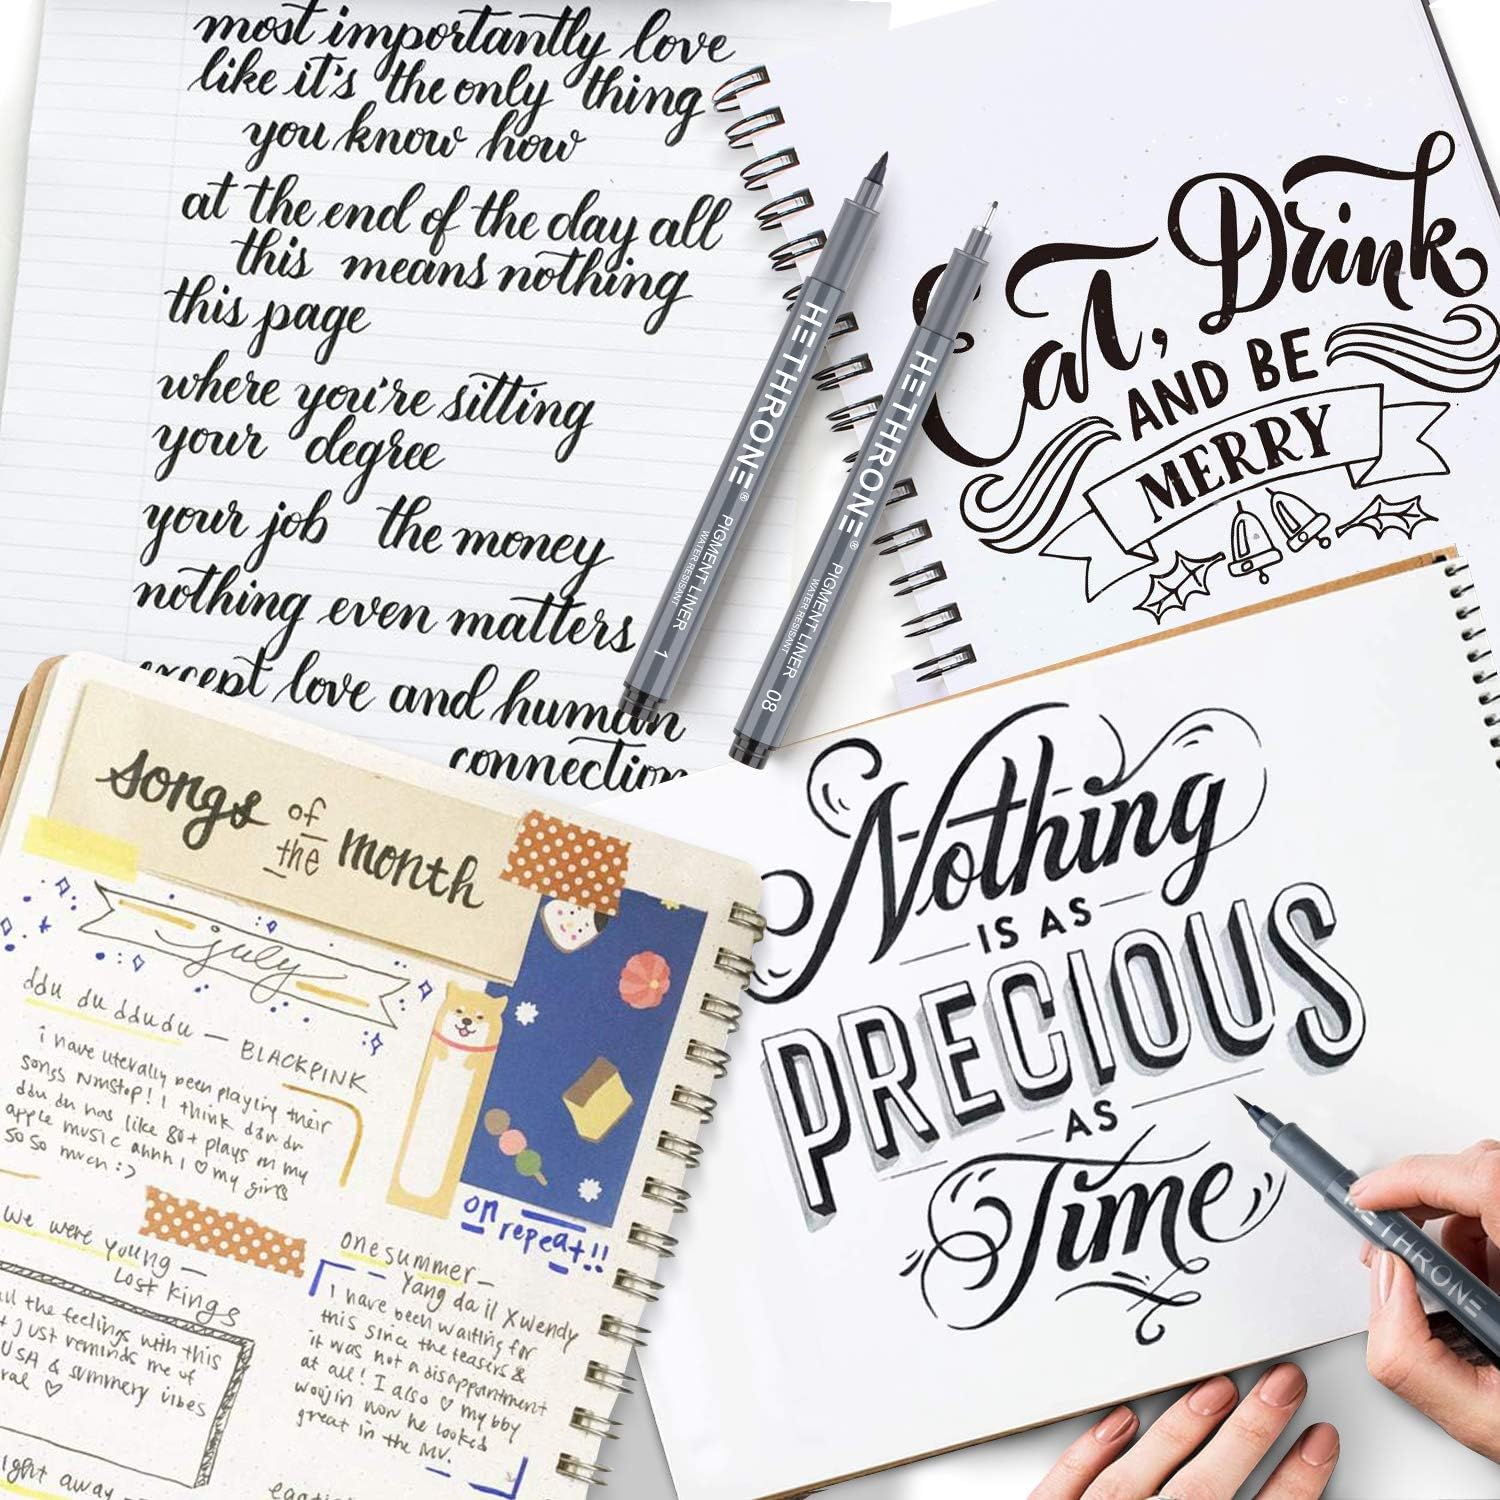 most importantly love
like it's the only thing
you know how
at the end of the day all
this means nothing
this page
where you're sitting
your degree
your job the money
nothing even matters
except love and human
connection
HETHRONE® PIGMENT LINER
WATER RESISANT
1
HETHRONE® PIGMENT LINER
WATER RESISANT
08
Eat, Drink
AND BE
MERRY
songs of the month
july
ddu du ddudu — BLACKPINK
i have literally been playing their
songs nonstop! I think ddu du
ddu du has like 80+ plays on my
apple music ahhh i ♡ my girls
so so much :)
We were young —
Lost kings
all the feelings with this
just reminds me of
USA & summery vibes
♡
on repeat!!
one summer —
Yang da il X wendy
I have been waiting for
this since the teasers &
it was not a disappointment
at all! I also ♡ my bby
woojin wow he looked
great in the MV.
away —
Nothing
IS AS
PRECIOUS
AS
Time
HETHRONE